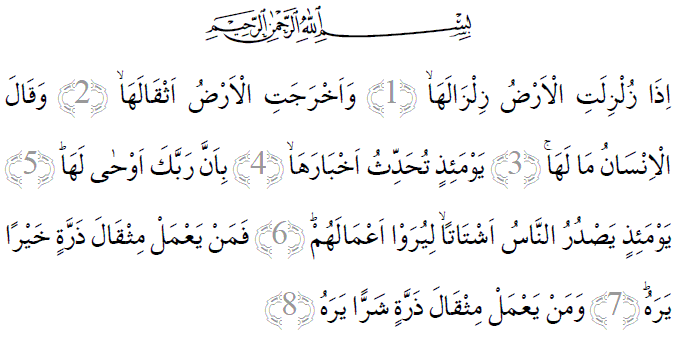 بِسْمِ اللّٰهِ الرَّحْمٰنِ الرَّحِيْمِ
اِذَا زُلْزِلَتِ الْاَرْضُ زِلْزَالَهَاۙ ﴿1﴾ وَاَخْرَجَتِ الْاَرْضُ اَثْقَالَهَاۙ ﴿2﴾ وَقَالَ
الْاِنْسَانُ مَا لَهَاۚ ﴿3﴾ يَوْمَئِذٍ تُحَدِّثُ اَخْبَارَهَاۙ ﴿4﴾ بِاَنَّ رَبَّكَ اَوْحٰى لَهَاۗ ﴿5﴾
يَوْمَئِذٍ يَصْدُرُ النَّاسُ اَشْتَاتًاۙ لِيُرَوْا اَعْمَالَهُمْۗ ﴿6﴾ فَمَنْ يَعْمَلْ مِثْقَالَ ذَرَّةٍ خَيْرًا
يَرَهُۗ ﴿7﴾ وَمَنْ يَعْمَلْ مِثْقَالَ ذَرَّةٍ شَرًّا يَرَهُ ﴿8﴾